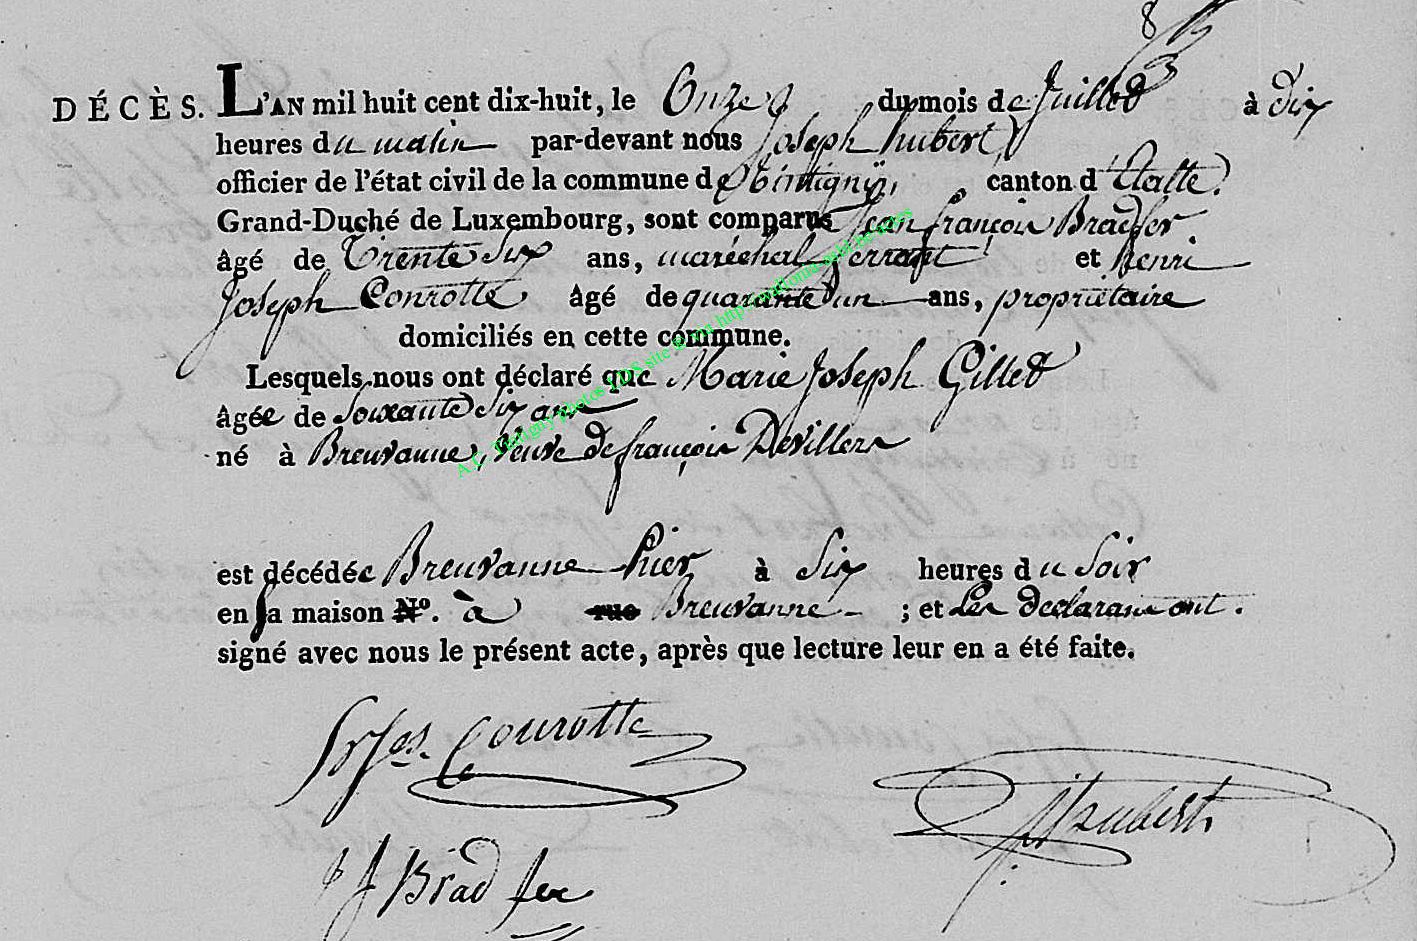 8
DÉCÈS. L'AN mil huit cent dix-huit, le Onze du mois de Juillet à dix
heures du matin par-devant nous Joseph hubert
officier de l'état civil de la commune de Tintigny, canton d'Etalle.
Grand-Duché de Luxembourg, sont comparus Jean françois Bradfer
âgé de Trente Six ans, maréchal ferrant et henri
Joseph Conrotte, âgé de quarante un ans, propriétaire
domiciliés en cette commune.
Lesquels nous ont déclaré que Marie Joseph Gillet
âgée de Soixante Six ans
né à Breuvanne, Veuve de françois Devillers
est décédée Breuvanne hier à Six heures du Soir
en sa maison N.º à rue Breuvanne ; et Les declarans ont.
signé avec nous le présent acte, après que lecture leur en a été faite.
Conrotte
Hubert
J f Bradfer
A.C. Tintigny Photos LDS site © via http://